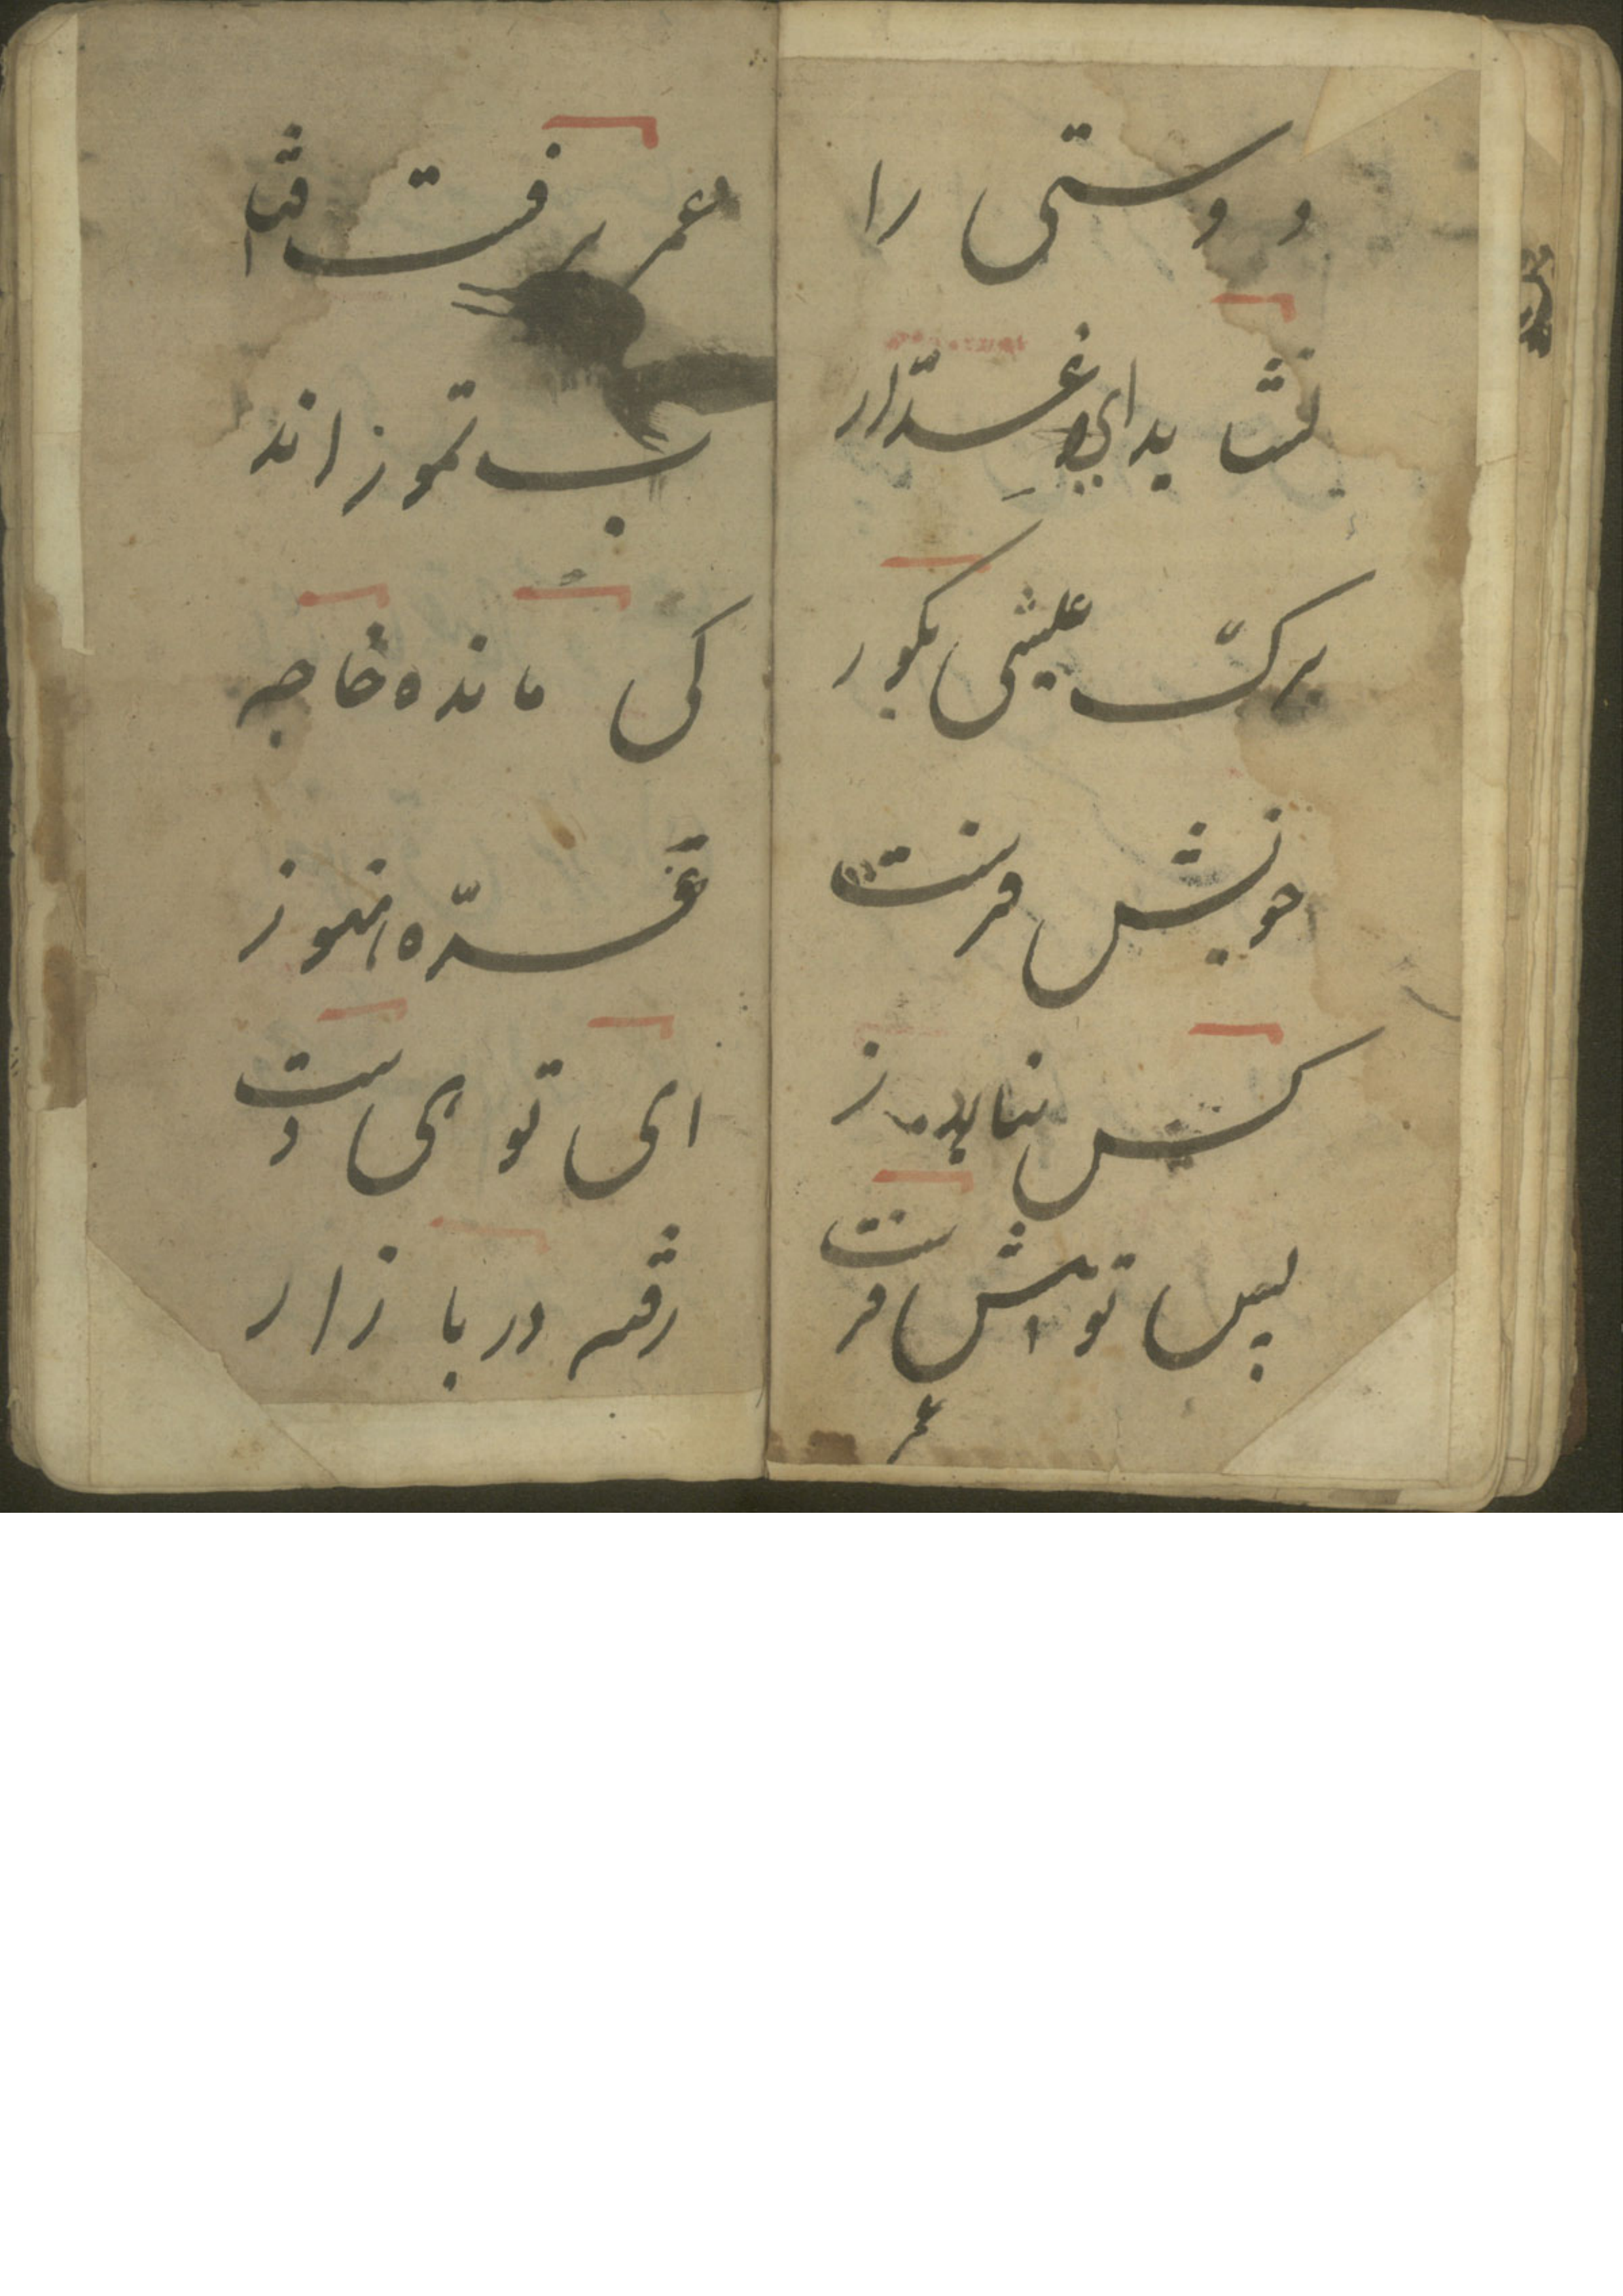 دوستی را
نشاید این غدّار
برک عیشی بکور
خویش فرست
کس نیارد ز
پس تو پیش فرست
عمر
عمر برفست و افتا
ب تموز اند
کی مانده خاجه
غرّه هنوز
ای توهی دست
رفته در بازار